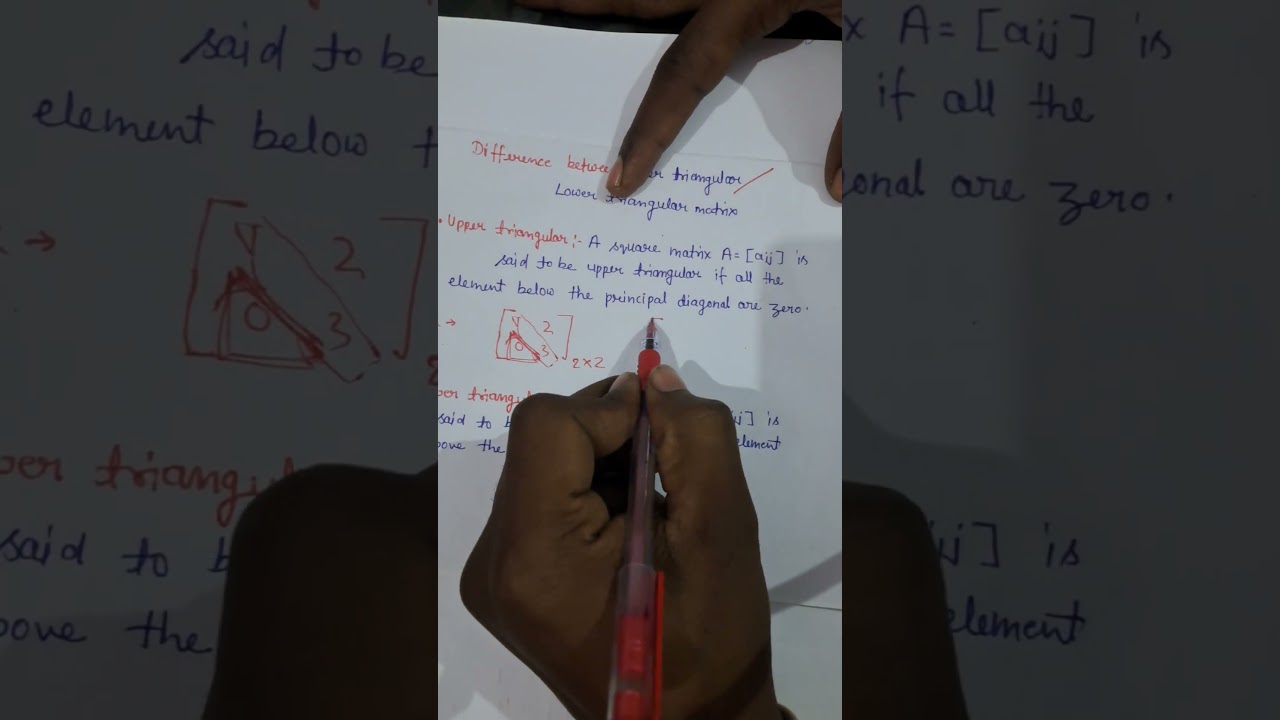 Difference between triangular
Lower triangular matrix
Upper triangular :- A square matrix A = [aij] is
said to be upper triangular if all the
element below the principal diagonal are zero.
→ [1 2
0 3] 2×2
per triangu
said to ij] is
ove the element